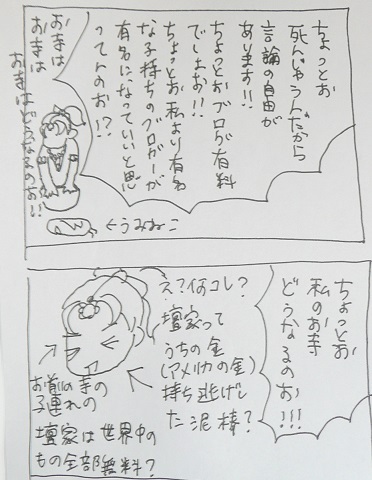 ちょっとお
死んじゃうんだから
言論の自由が
あります!!
でしょお!!
ちょっとおブログ有料
ちょっとお私より有名
な子持ちのブロガーが
有名になっていいと思
ってんのお!?
お寺は
お寺は
お寺はどうなるのおい
←うみねこ
ちょっとお
私のお寺
どうなるのお!!!
え?何コレ?
壇家って
うちの金
(アメリカの金)
持ち逃げし
た泥棒?
お前の寺の
子連れの
壇家は世界中の
もの全部無料?